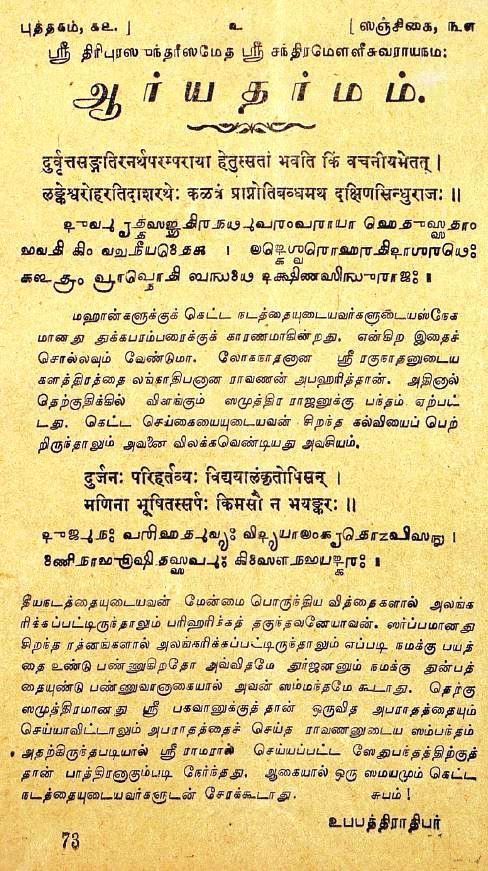 புத்தகம், ௧௨. ] ௨ [ ஸஞ்சிகை, ௩,௭
ஸ்ரீ திரிபுரஸுந்தரீஸமேத ஸ்ரீ சந்திரமௌளீசுவராயநம:
ஆர்யதர்மம்.
दुर्वृत्तसङ्गतिरनर्थपरम्पराया हेतुस्सतां भवति किं वचनीयमेतत् ।
लङ्केश्वरोहरतिदाशरथेः कळत्रं प्राप्नोतिबन्धमथ दक्षिणसिन्धुराजः ॥
மஹான்களுக்குக் கெட்ட நடத்தையுடையவர்களுடையஸ்நேக
மானது துக்கபரம்பரைக்குக் காரணமாகின்றது. என்கிற இதைச்
சொல்லவும் வேண்டுமா. லோகநாதனான ஸ்ரீ ரகுநாதனுடைய
களத்திரத்தை லங்காதிபனான ராவணன் அபஹரித்தான். அதினால்
தெற்குதிக்கில் விளங்கும் ஸமுத்திர ராஜனுக்கு பந்தம் ஏற்பட்
டது. கெட்ட செய்கையையுடையவன் சிறந்த கல்வியைப் பெற்
றிருந்தாலும் அவனை விலக்கவேண்டியது அவசியம்.
दुर्जनः परिहर्तव्यः विद्ययालंकृतोपिसन् ।
मणिना भूषितस्सर्पः किमसौ न भयङ्करः ॥
தீயநடத்தையுடையவன் மேன்மை பொருந்திய வித்தைகளால் அலங்க
ரிக்கப்பட்டிருந்தாலும் பரிஹரிக்கத் தகுந்தவனேயாவன். ஸர்ப்பமானது
சிறந்த ரத்னங்களால் அலங்கரிக்கப்பட்டிருந்தாலும் எப்படி நமக்கு பயத்
தை உண்டு பண்ணுகிறதோ அவ்விதமே துர்ஜனனும் நமக்கு துன்பத்
தையுண்டு பண்ணுவானாகையால் அவன் ஸம்மந்தமே கூடாது. தெற்கு
ஸமுத்திரமானது ஸ்ரீ பகவானுக்குத் தான் ஒருவித அபராதத்தையும்
செய்யாவிட்டாலும் அபராதத்தைச் செய்த ராவணனுடைய ஸம்பந்தம்
அதற்கிருந்தபடியால் ஸ்ரீ ராமரால் செய்யப்பட்ட ஸேதுபந்தத்திற்குத்
தான் பாத்திரனாகும்படி நேர்ந்தது. ஆகையால் ஒரு ஸமயமும் கெட்ட
நடத்தையுடையவர்களுடன் சேரக்கூடாது. சுபம் !
உபபத்திராதிபர்
73